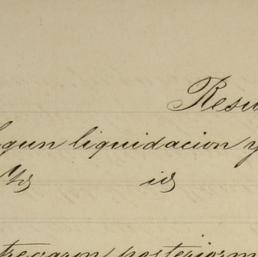 Resu
egun liquidacion y
Yd id
tregaron posteriorm